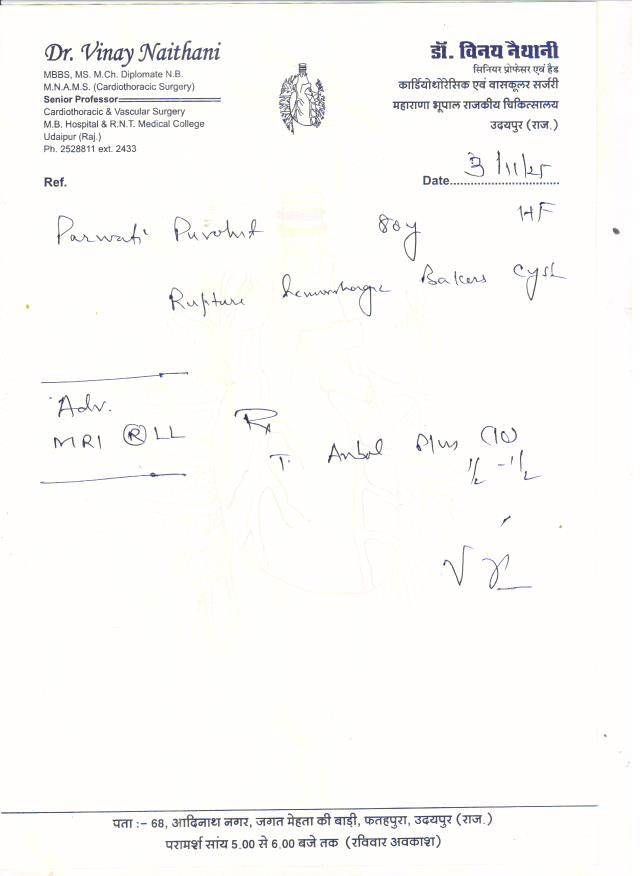 Dr. Vinay Naithani
MBBS, MS. M.Ch. Diplomate N.B.
M.N.A.M.S. (Cardiothoracic Surgery)
Senior Professor
Cardiothoracic & Vascular Surgery
M.B. Hospital & R.N.T. Medical College
Udaipur (Raj.)
Ph. 2528811 ext. 2433
डॉ. विनय नैथानी
सिनियर प्रोफेसर एवं हैड
कार्डियोथोरेसिक एवं वासकूलर सर्जरी
महाराणा भूपाल राजकीय चिकित्सालय
उदयपुर (राज.)
Ref.
Date 3/11/25
Parwati Purohit 80y HF
Rupture hemorrhagic Bakers Cyst
Adv.
MRI Ⓡ LL
Rx
T. Anbol Plus (10)
1/2 - 1/2
पता :– 68, आदिनाथ नगर, जगत मेहता की बाड़ी, फतहपुरा, उदयपुर (राज.)
परामर्श सांय 5.00 से 6.00 बजे तक (रविवार अवकाश)